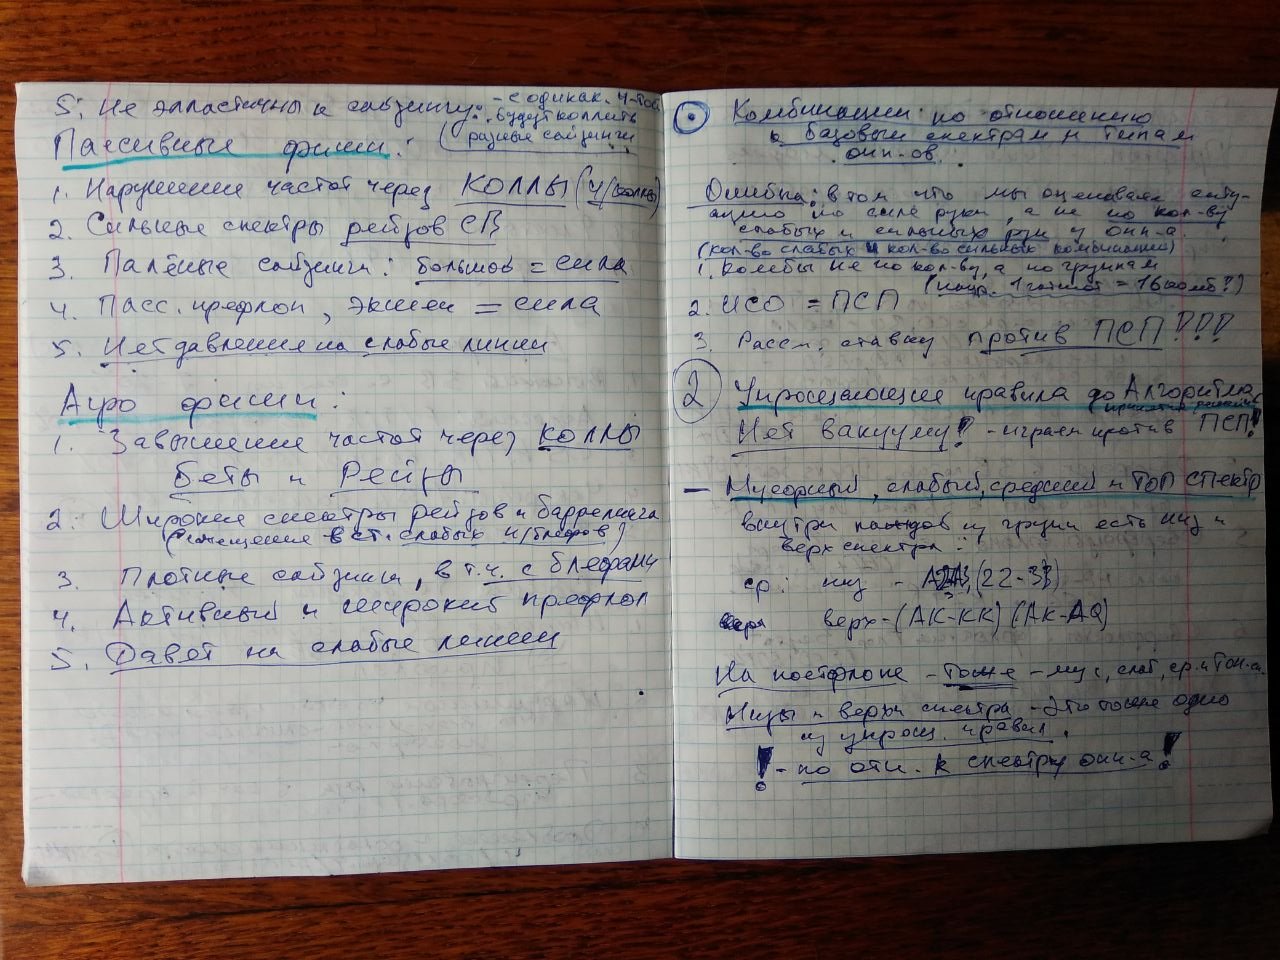 5. Не эластичны к сайзингу: - с одинак. ч-той
будут коллить
разные сайзинги
Пассивные фиши:
1. Нарушение частот через КОЛЛЫ (ч/коллы)
2. Сильные спектры рейзов СВ
3. Палёные сайзинги: большой = сила
4. Пасс. префлоп, экшен = сила
5. Нет давления на слабые линии
Агро фиши:
1. Завышение частот через КОЛЛЫ
Беты и Рейзы
2. Широкие спектры рейзов и баррелинга
(смещение в ст. слабых и/блефов)
3. Плотные сайзинги, в т.ч. с блефами
4. Активный и широкий префлоп
5. Давят на слабые линии
Комбинации по отношению
к базовым спектрам и типам
опп-ов.
Ошибка: в том что мы оцениваем ситу-
ацию по силе руки, а не по кол-ву
слабых и сильных рук у опп-а.
(кол-во слабых и кол-во сильных комбинаций)
1. Комбы не по кол-ву, а по группам
(напр. 1 = 16 комб?)
2. ИСО = ПСП
3. Рассм. ставку против ПСП!!!
2 Упрощающие правила до Алгоритма
принятия решений
Нет вакууму! - играем против ПСП!
- Мусорный, слабый, средний и ТОП спектр
внутри каждой из групп есть низ и
верх спектра:
ср: низ - (22-33)
верх - (АК-КК) (АК-AQ)
На постфлопе - тоже - мус, слаб, ср. и Топ-сп.
Низы и верхи спектра - это тоже одно
из упрощ. правил.
! - по отн. к спектру опп-а!